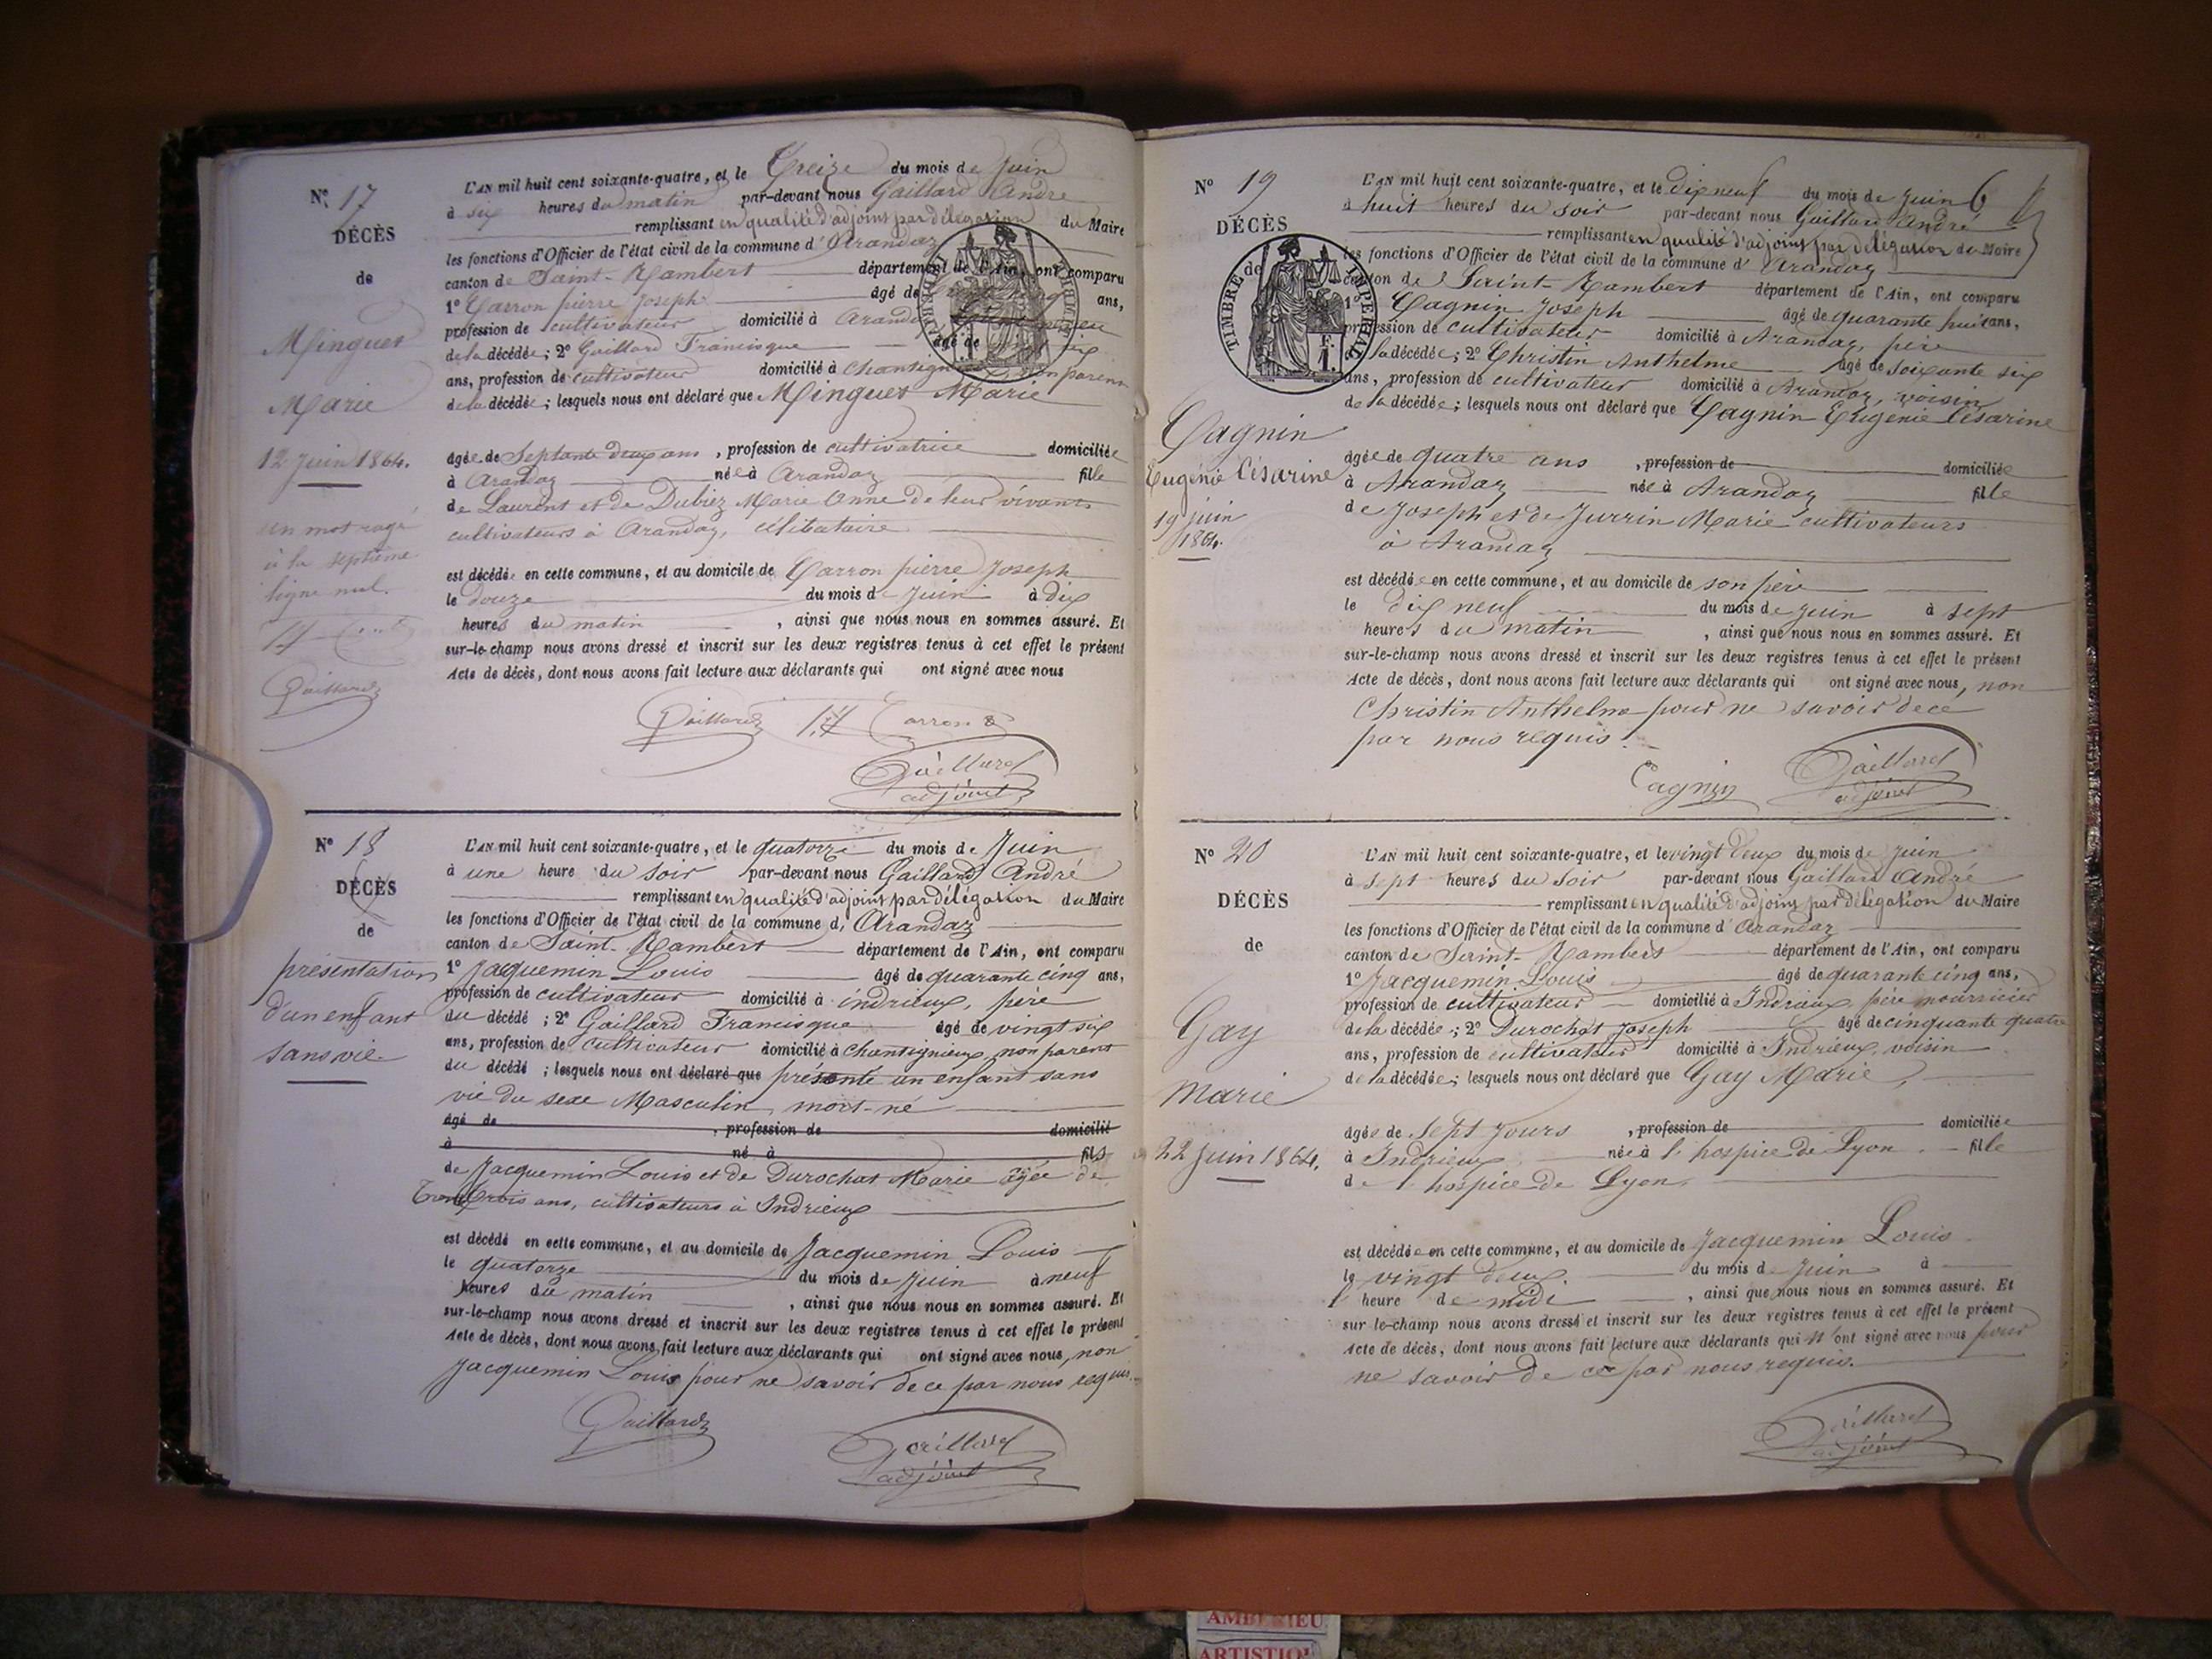 N° 17
DÉCÈS
de
Minguet
Marie
12 Juin 1864.
un mot rayé
à la septième
ligne nul.
Gaillard
L'AN mil huit cent soixante-quatre, et le Treize du mois de Juin
à six heures du matin par-devant nous Gaillard André
remplissant en qualité d'adjoint par délégation du Maire
les fonctions d'Officier de l'état civil de la commune d'Arandaz
canton de Saint-Rambert département de l'Ain, ont comparu
1° Carron pierre Joseph âgé de ans,
profession de cultivateur domicilié à Arandaz
de la décédée; 2° Gaillard Francisque âgé de six
ans, profession de cultivateur domicilié à Chantignieux non parent
de la décédée; lesquels nous ont déclaré que Minguet Marie
âgée de Septante deux ans, profession de cultivatrice domiciliée
à Arandaz née à Arandaz fille
de Laurent et de Dubiez Marie Anne de leur vivants
cultivateurs à Arandaz, célibataire
est décédée en cette commune, et au domicile de Carron pierre Joseph
le douze du mois de Juin à dix
heures du matin, ainsi que nous nous en sommes assuré. Et
sur-le-champ nous avons dressé et inscrit sur les deux registres tenus à cet effet le présent
Acte de décès, dont nous avons fait lecture aux déclarants qui ont signé avec nous
Gaillard Carron
Gaillard
adjoint
N° 18
DÉCÈS
de
présentation
d'un enfant
sans vie
L'AN mil huit cent soixante-quatre, et le quatorze du mois de Juin
à une heure du soir par-devant nous Gaillard André
remplissant en qualité d'adjoint par délégation du Maire
les fonctions d'Officier de l'état civil de la commune d, Arandaz
canton de Saint-Rambert département de l'Ain, ont comparu
1° Jacquemin Louis âgé de quarante cinq ans,
profession de cultivateur domicilié à indrieux, père
du décédé; 2° Gaillard Francisque âgé de vingt six
ans, profession de cultivateur domicilié à Chantignieux, non parent
du décédé; lesquels nous ont déclaré que présenté un enfant sans
vie du sexe Masculin, mort-né
âgé de, profession de domicilié
à né à fils
de Jacquemin Louis et de Durochat Marie âgée de
Trente trois ans, cultivateurs à Indrieux
est décédé en cette commune, et au domicile de Jacquemin Louis
le quatorze du mois de Juin à neuf
heures du matin, ainsi que nous nous en sommes assuré. Et
sur-le-champ nous avons dressé et inscrit sur les deux registres tenus à cet effet le présent
Acte de décès, dont nous avons fait lecture aux déclarants qui ont signé avec nous, non
Jacquemin Louis pour ne savoir de ce par nous requis.
Gaillard
Gaillard
adjoint
N° 19
DÉCÈS
de
TIMBRE IMPÉRIAL
Cagnin
Eugénie Césarine
19 juin
1864.
L'AN mil huit cent soixante-quatre, et le dix neuf du mois de Juin 6
à huit heures du soir par-devant nous Gaillard André
remplissant en qualité d'adjoint par délégation du Maire
les fonctions d'Officier de l'état civil de la commune d'Arandaz
canton de Saint-Rambert département de l'Ain, ont comparu
1° Cagnin Joseph âgé de quarante huit ans,
profession de cultivateur domicilié à Arandaz, père
de la décédée; 2° Christin Anthelme âgé de soixante six
ans, profession de cultivateur domicilié à Arandaz, voisin
de la décédée; lesquels nous ont déclaré que Cagnin Eugénie Césarine
âgée de quatre ans, profession de domiciliée
à Arandaz née à Arandaz fille
de Joseph et de Jurrin Marie cultivateurs
à Arandaz
est décédée en cette commune, et au domicile de son père
le dix neuf du mois de juin à sept
heures du matin, ainsi que nous nous en sommes assuré. Et
sur-le-champ nous avons dressé et inscrit sur les deux registres tenus à cet effet le présent
Acte de décès, dont nous avons fait lecture aux déclarants qui ont signé avec nous, non
Christin Anthelme pour ne savoir de ce
par nous requis.
Cagnin Gaillard
adjoint
N° 20
DÉCÈS
de
Gay
Marie
22 Juin 1864.
L'AN mil huit cent soixante-quatre, et le vingt deux du mois de Juin
à sept heures du soir par-devant nous Gaillard André
remplissant en qualité d'adjoint par délégation du Maire
les fonctions d'Officier de l'état civil de la commune d'Arandaz
canton de Saint-Rambert département de l'Ain, ont comparu
1° Jacquemin Louis âgé de quarante cinq ans,
profession de cultivateur domicilié à Indrieux, père nourricier
de la décédée; 2° Durochat Joseph âgé de cinquante quatre
ans, profession de cultivateur domicilié à Indrieux, voisin
de la décédée; lesquels nous ont déclaré que Gay Marie,
âgée de sept jours, profession de domiciliée
à Indrieux née à l'hospice de Lyon. fille
de l'hospice de Lyon,
est décédée en cette commune, et au domicile de Jacquemin Louis
le vingt deux du mois de Juin à
l'heure de midi, ainsi que nous nous en sommes assuré. Et
sur-le-champ nous avons dressé et inscrit sur les deux registres tenus à cet effet le présent
Acte de décès, dont nous avons fait lecture aux déclarants qui n'ont signé avec nous pour
ne savoir de ce par nous requis.
Gaillard
adjoint
AMBERIEU
ARTISTIQU